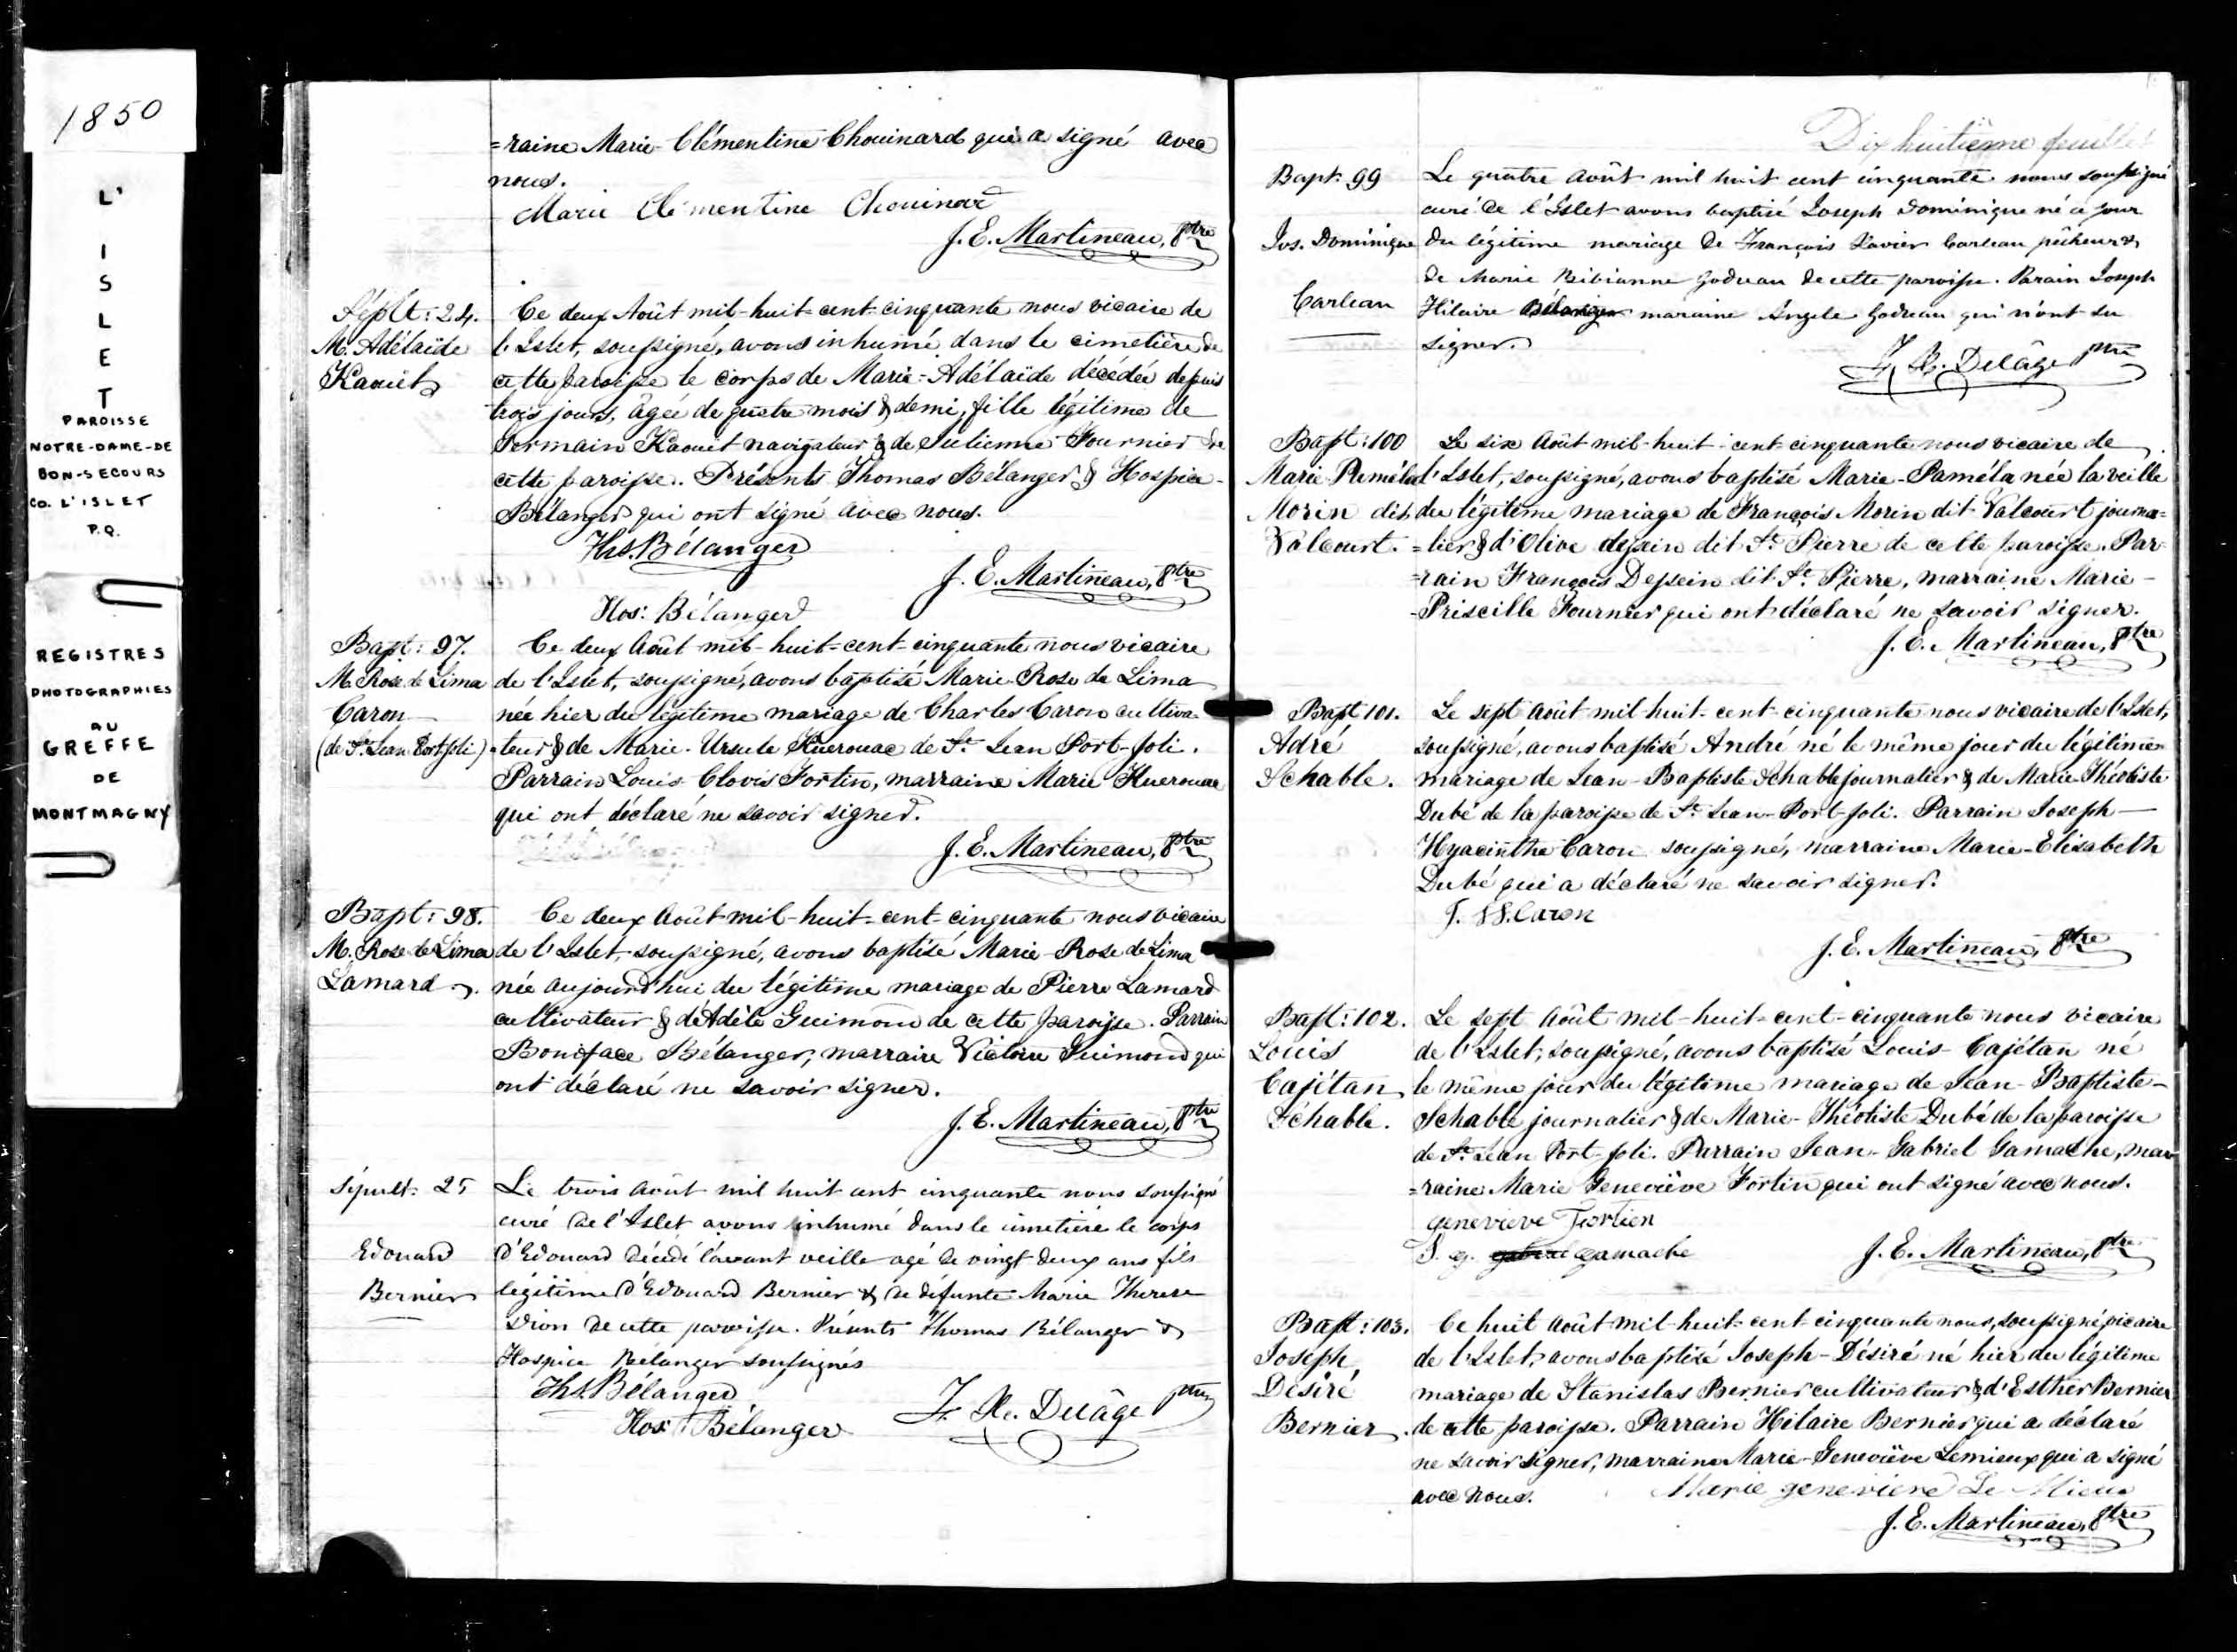 1850
L'
I
S
L
E
T
PAROISSE
NOTRE-DAME-DE
BON-SECOURS
CO. L'ISLET
P.Q.
REGISTRES
PHOTOGRAPHIES
AU
GREFFE
DE
MONTMAGNY
=raine Marie-Clémentine Chouinard qui a signé avec
nous.
Marie Clémentine Chouinard
J. E. Martineau, Ptre
Sépult: 24.
M. Adélaïde
Kaouët
Ce deux Août mil-huit-cent-cinquante nous vicaire de
l'Islet, soussigné, avons inhumé dans le cimetière de
cette paroisse le corps de Marie-Adélaïde décédée depuis
trois jours, âgée de quatre mois & demi, fille légitime de
Germain Kaouët navigateur & de Julienne Fournier de
cette paroisse. Présents Thomas Bélanger & Hospice-
Bélanger qui ont signé avec nous.
Ths. Bélanger
J. E. Martineau, Ptre
Hos: Bélanger
Bapt: 97.
M. Rose de Lima
Caron
(de St. Jean Port-Joli)
Ce deux Août mil-huit-cent-cinquante nous vicaire
de l'Islet, soussigné, avons baptisé Marie Rose de Lima
née hier du légitime mariage de Charles Caron cultiva-
-teur & de Marie-Ursule Kuerouac de St. Jean Port-Joli.
Parrain Louis Clovis Fortin, marraine Marie Kuerouac
qui ont déclaré ne savoir signer.
J. E. Martineau, Ptre
Bapt: 98.
M. Rose de Lima
Lamard
Ce deux Août mil-huit-cent-cinquante nous vicaire
de l'Islet, soussigné, avons baptisé Marie-Rose de Lima
née aujourd'hui du légitime mariage de Pierre Lamard
cultivateur & d'Adèle Guimond de cette paroisse. Parrain
Boniface Bélanger, marraine Victoire Guimond qui
ont déclaré ne savoir signer.
J. E. Martineau, Ptre
Sépult: 25
Edouard
Bernier
Le trois Août mil huit cent cinquante nous soussigné
curé de l'Islet avons inhumé dans le cimetière le corps
d'Edouard décédé l'avant veille agé de vingt deux ans fils
légitime d'Edouard Bernier & de défunte Marie Therese
Dion de cette paroisse. Présents Thomas Bélanger &
Hospice Bélanger soussignés
Ths. Bélanger
Hos: Bélanger
F. X. Delâge Ptre
Dix huitième feuillet
Bapt: 99
Jos. Dominique
Carleau
Le quatre Août mil huit cent cinquante nous soussigné
curé de l'Islet avons baptisé Joseph Dominique né ce jour
du légitime mariage de François Xavier Carleau pêcheur &
de Marie Bibianne Godreau de cette paroisse. Parain Joseph
Hilaire Bélanger maraine Angele Godreau qui n'ont su
signer.
F. X. Delâge Ptre
Bapt: 100
Marie Paméla
Morin dit
Valcourt.
Le six Août mil-huit-cent-cinquante nous vicaire de
l'Islet, soussigné, avons baptisé Marie-Paméla née la veille
du légitime mariage de François Morin dit Valcourt journa=
=lier & d'Olive dessein dit St. Pierre de cette paroisse. Par-
=rain François Dessein dit St. Pierre, marraine Marie-
-Priscille Fournier qui ont déclaré ne savoir signer.
J. E. Martineau, Ptre
Bapt 101.
Adré
Schable.
Le sept Août mil-huit-cent-cinquante nous vicaire de l'Islet,
soussigné, avons baptisé André né le même jour du légitime
mariage de Jean-Baptiste Schable journalier & de Marie-Théotiste
Dubé de la paroisse de St. Jean-Port-Joli. Parrain Joseph-
Hyacinthe Caron soussigné, marraine Marie-Elisabeth
Dubé qui a déclaré ne savoir signer.
J. H. Caron
J. E. Martineau, Ptre
Bapt: 102.
Louis
Cajétan
Schable.
Le sept Août mil-huit-cent-cinquante nous vicaire
de l'Islet, soussigné, avons baptisé Louis-Cajétan né
le même jour du légitime mariage de Jean-Baptiste-
Schable journalier & de Marie-Théotiste Dubé de la paroisse
de St. Jean Port-Joli. Parrain Jean-Gabriel Gamache, mar
=raine Marie Geneviève Fortin qui ont signé avec nous.
genevieve Fortien
J. g. gabriel gamache
J. E. Martineau, Ptre
Bapt: 103.
Joseph
Désiré
Bernier.
Ce huit Août mil-huit-cent-cinquante nous, soussigné, vicaire
de l'Islet, avons baptisé Joseph-Désiré né hier du légitime
mariage de Stanislas Bernier cultivateur & d'Esther Bernier
de cette paroisse. Parrain Hilaire Bernier qui a déclaré
ne savoir signer, marraine Marie-Geneviève Lemieux qui a signé
avec nous.
Marie genevieve Le Mieux
J. E. Martineau, Ptre